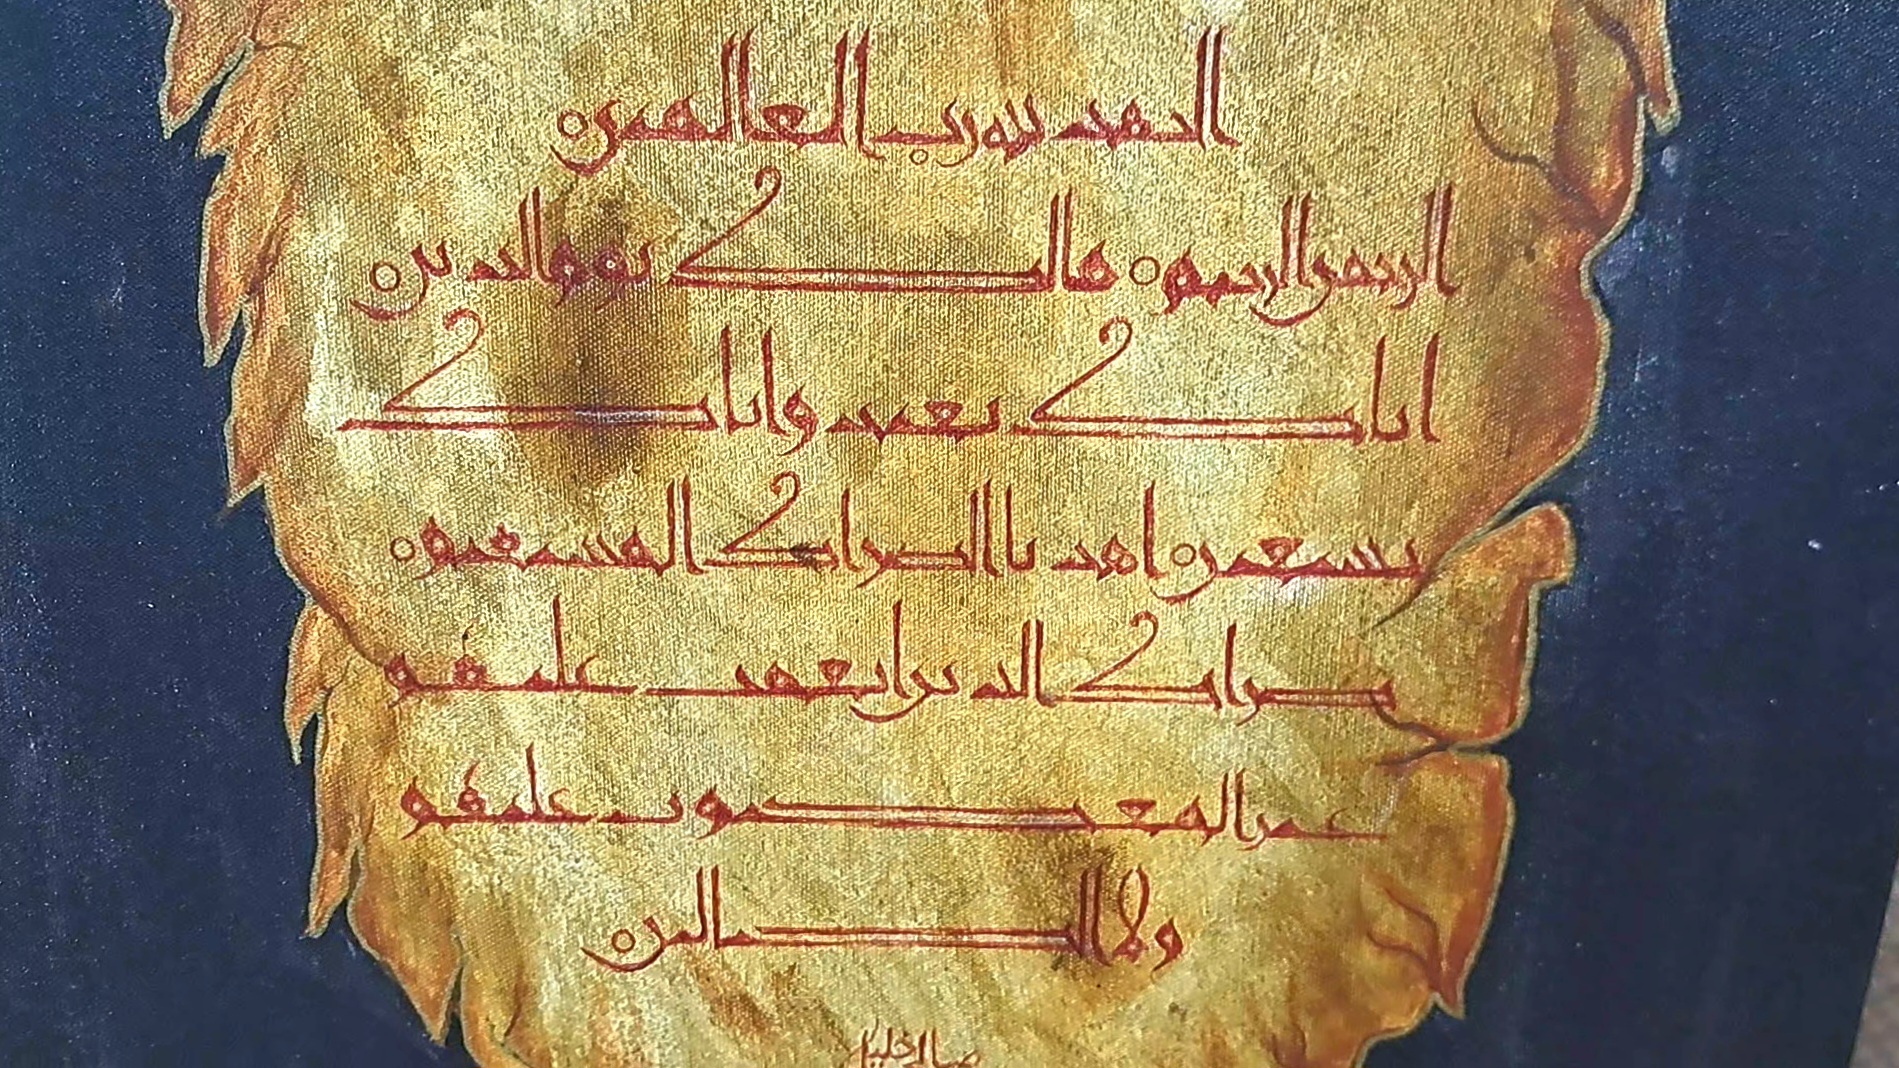 الحمد لله رب العالمين
الرحمن الرحيم مالك يوم الدين
اياك نعبد واياك
نستعين اهدنا الصراط المستقيم
صراط الذين انعمت عليهم
غير المغضوب عليهم
ولا الضالين